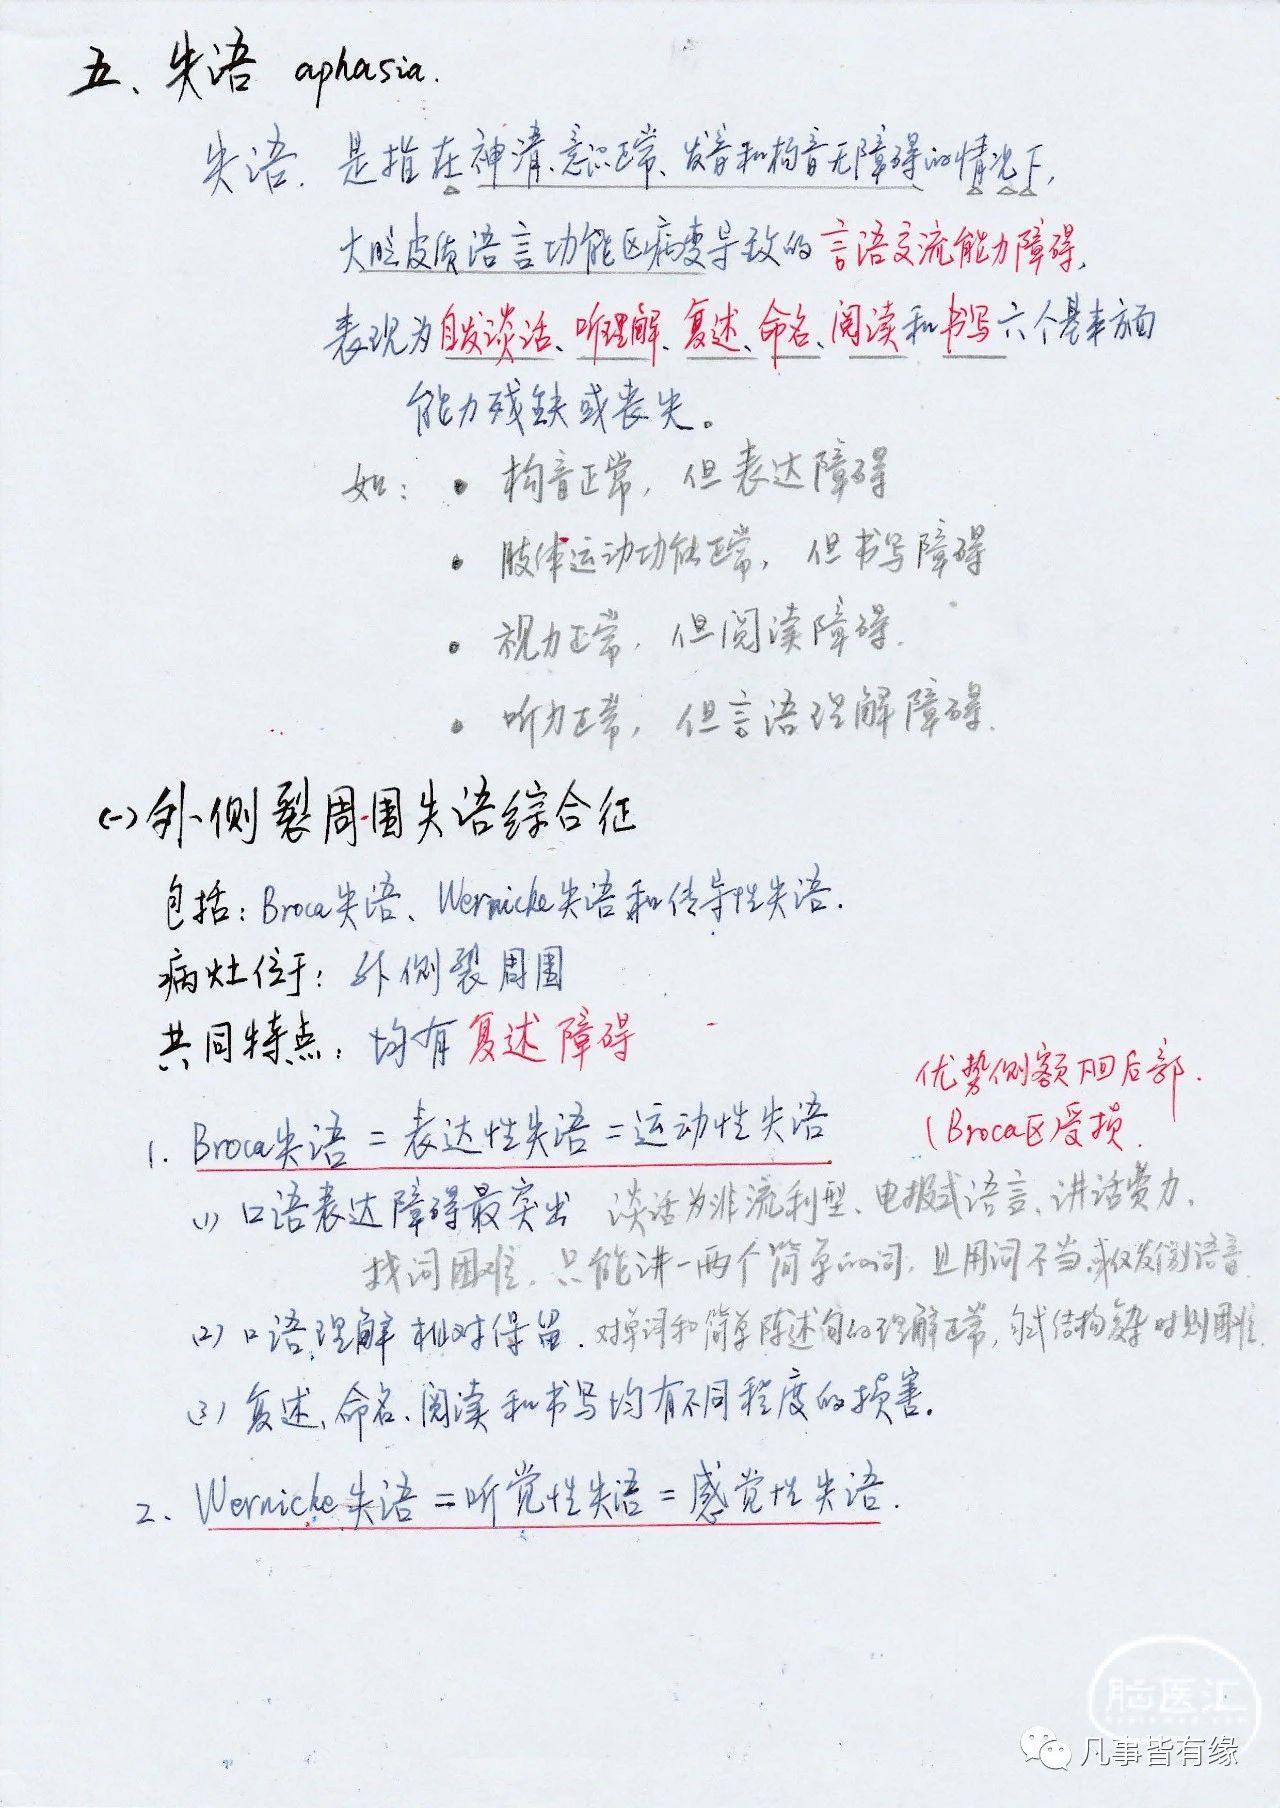 五、失语 aphasia.
失语. 是指在神清、意识正常、发音和构音无障碍的情况下,
大脑皮质语言功能区病变导致的言语交流能力障碍,
表现为自发谈话、听理解、复述、命名、阅读和书写六个基本方面
能力残缺或丧失。
如: • 构音正常, 但表达障碍
• 肢体运动功能正常, 但书写障碍
• 视力正常, 但阅读障碍.
• 听力正常, 但言语理解障碍.
(一)外侧裂周围失语综合征
包括: Broca失语、Wernicke失语和传导性失语.
病灶位于: 外侧裂周围
共同特点: 均有复述障碍
优势侧额下回后部.
(Broca区受损.
1. Broca失语=表达性失语=运动性失语
(1) 口语表达障碍最突出 谈话为非流利型、电报式语言、讲话费力.
找词困难. 只能讲一两个简单的词, 且用词不当,或仅发个别语音.
(2) 口语理解相对保留. 对单词和简单陈述句的理解正常, 句式结构复杂时则困难.
(3) 复述、命名、阅读和书写均有不同程度的损害.
2. Wernicke失语=听觉性失语=感觉性失语.
脑医汇
凡事皆有缘